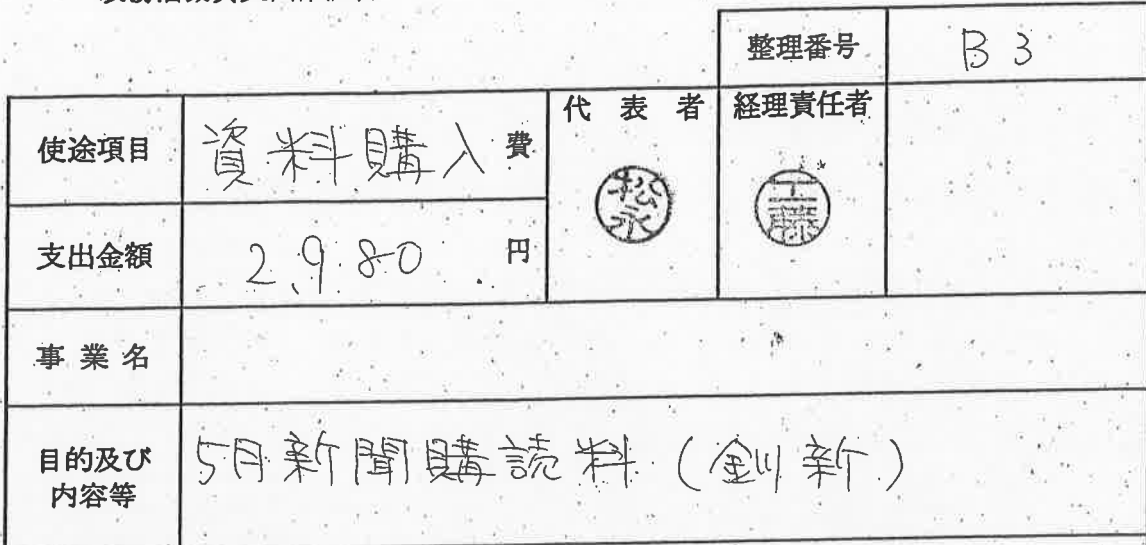 整理番号 B 3
使途項目 資料購入 費
代表者 経理責任者
松永
工藤
支出金額 2,980 円
事業名
目的及び
内容等
5月新聞購読料(釧新)